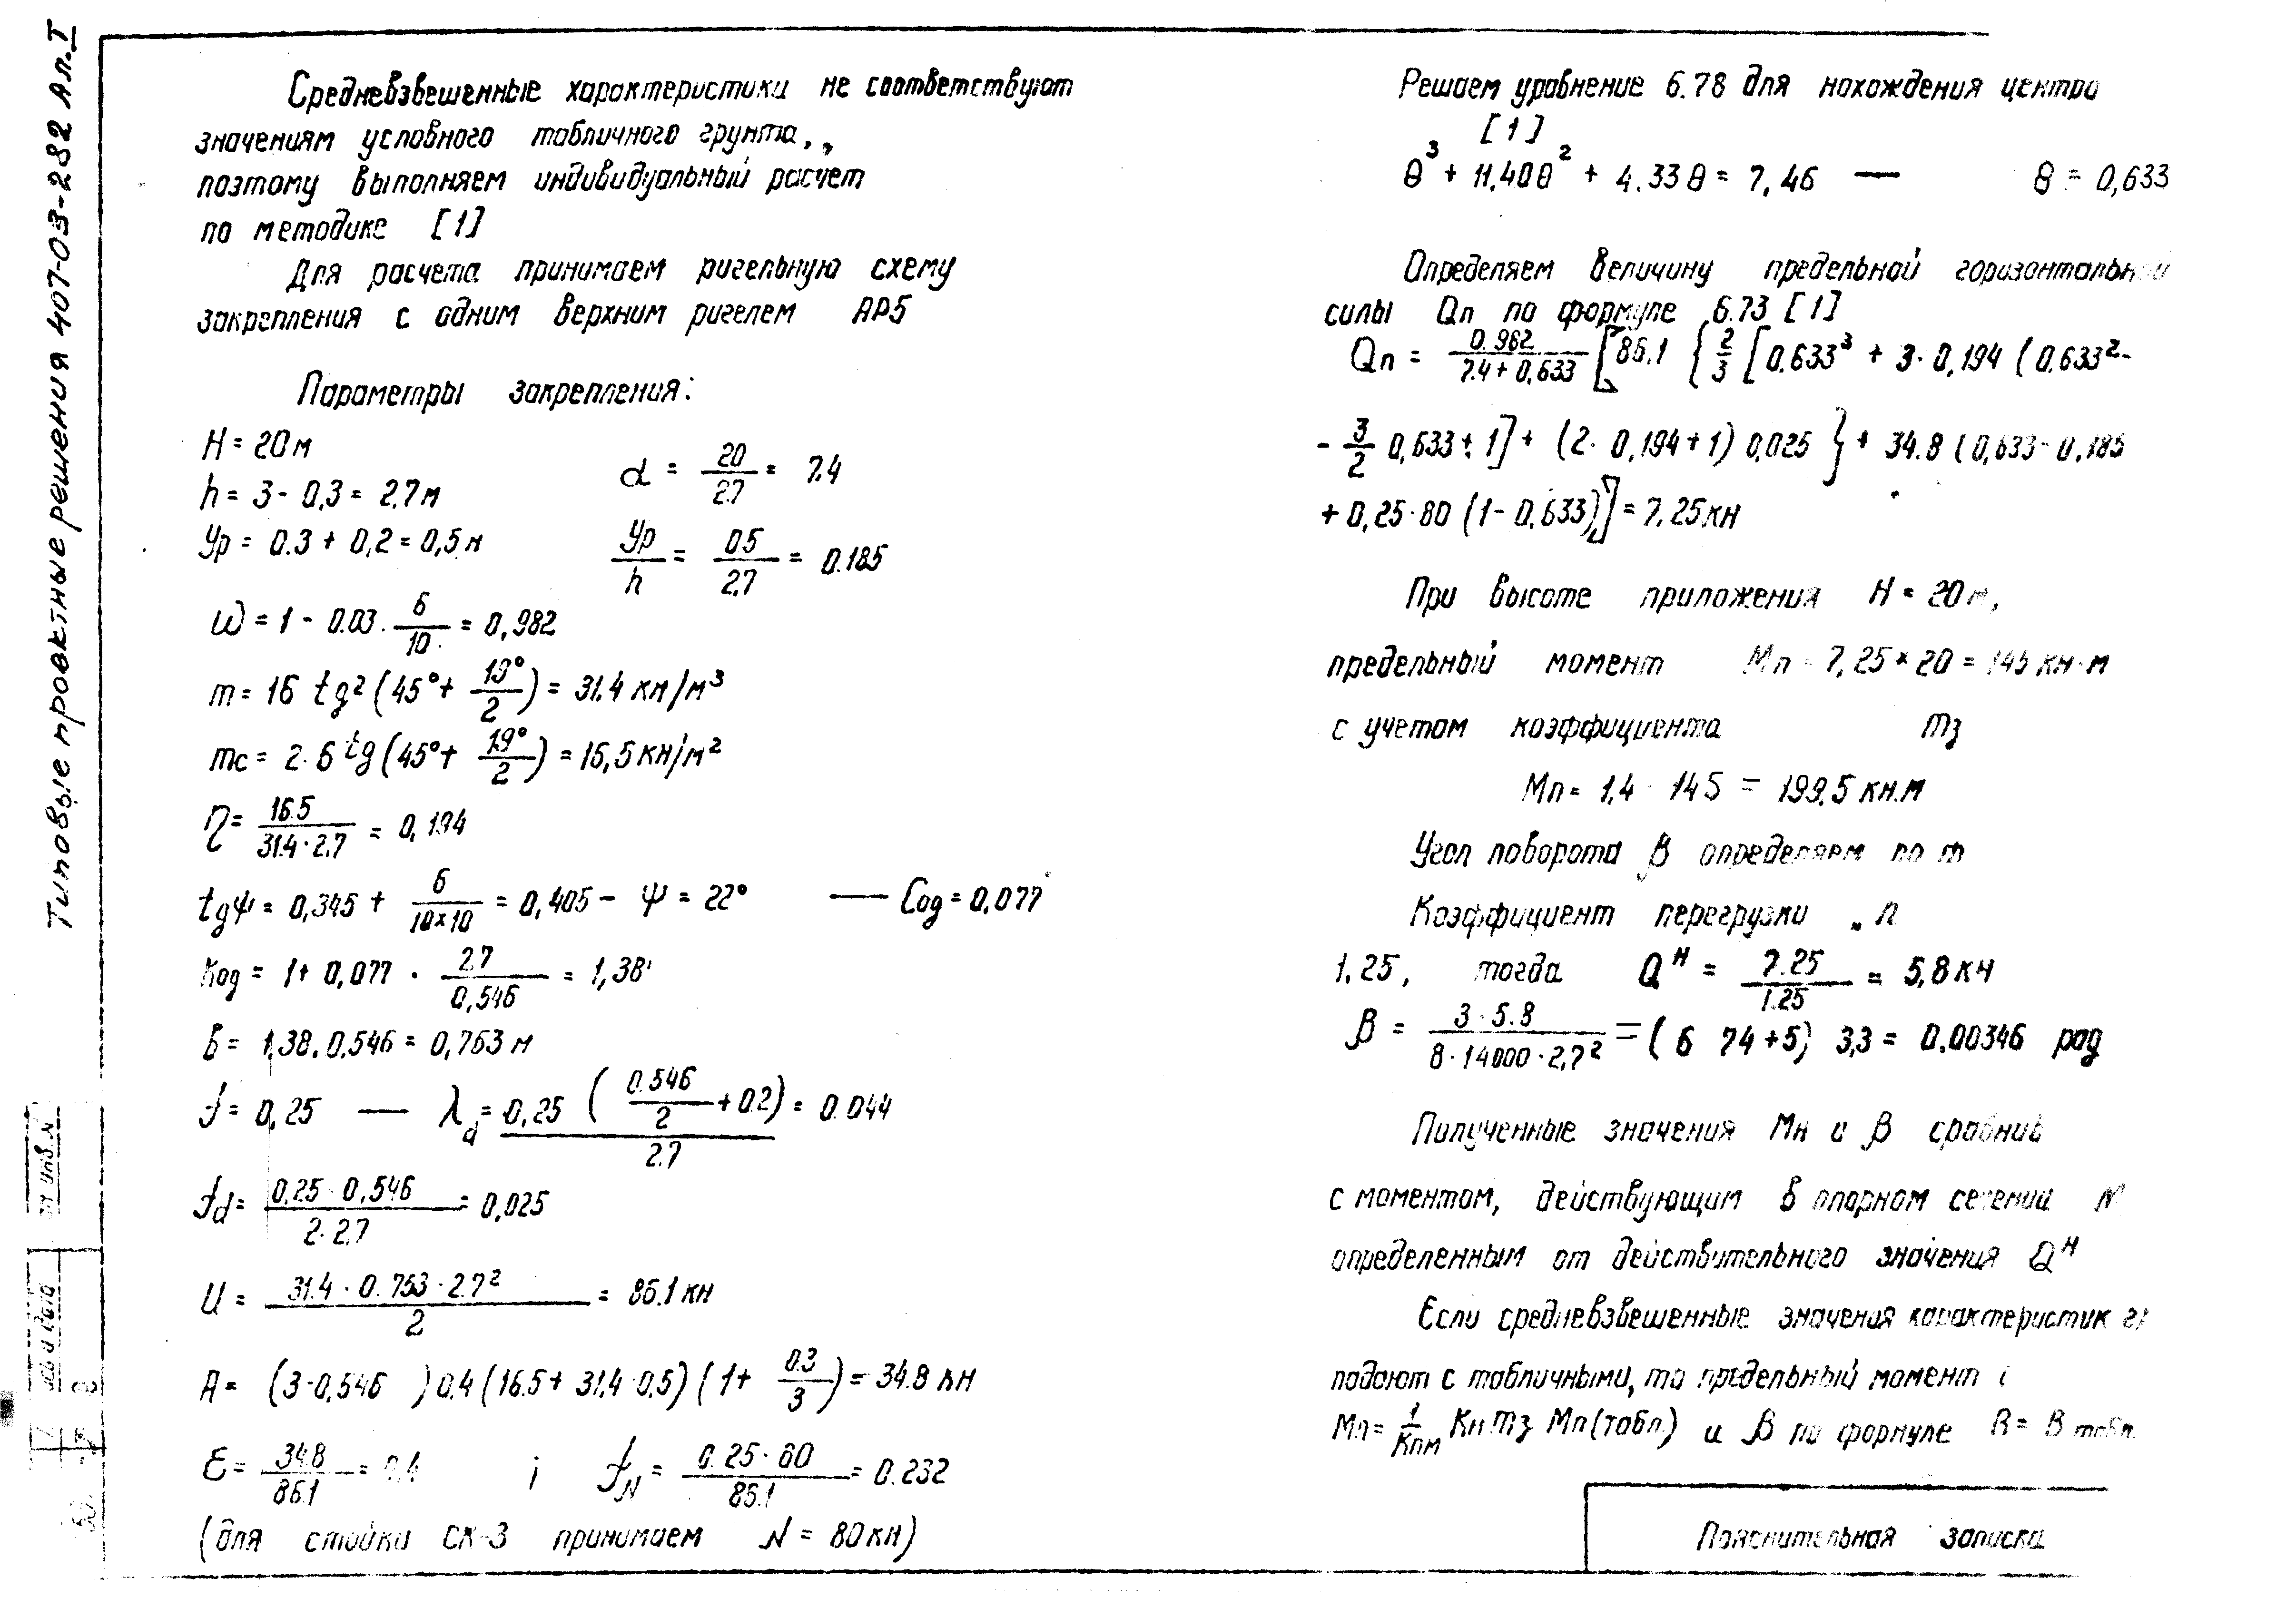 Типовые проектные решения 407-03-282 Ал.I
Средневзвешенные характеристики не соответствуют
значениям условного табличного грунта,,
поэтому выполняем индивидуальный расчет
по методике [1]
Для расчета принимаем ригельную схему
закрепления с одним верхним ригелем АР5
Параметры закрепления:
H = 20м
h = 3 - 0,3 = 2,7м
α = 20/2.7 = 7.4
Ур = 0.3 + 0,2 = 0,5м
Ур/h = 0.5/2.7 = 0.185
ω = 1 - 0.03 · 6/10 = 0,982
m = 16 tg²(45°+ 19°/2) = 31.4 кн/м³
mc = 2·6 tg(45°+ 19°/2) = 16,5кн/м²
η = 16.5/31.4·2.7 = 0,194
tgψ = 0,345 + 6/10×10 = 0,405 - ψ = 22° — Cод = 0,077
Код = 1+ 0,077 · 2.7/0,546 = 1,38
в = 1,38.0.546 = 0,763 м
f = 0,25 — λd = 0,25 (0.546/2 + 0.2)/2.7 = 0.044
fd = 0,25·0,546/2·2.7 = 0,025
U = 31.4·0.763·2.7²/2 = 86.1 кн
A = (3-0,546 ) 0.4 (16.5+ 31.4·0,5) (1+ 0.3/3) = 34.8 кн
ε = 34.8/86.1 = 0,4 ; fN = 0.25·80/86.1 = 0.232
(для стойки СК-3 принимаем N = 80кн)
Решаем уравнение 6.78 для нахождения центра
[1]
θ³ + 11,40θ² + 4.33θ = 7,46 — θ = 0,633
Определяем величину предельной горизонтальной
силы Qп по формуле 6.73 [1]
Qп = 0.982/7.4+0,633 [86,1 {2/3 [0.633³ + 3·0,194 (0.633²-
- 3/2 0,633 + 1] + (2·0,194+1) 0,025 } + 34.8 (0,633-0,185
+ 0,25·80 (1-0,633)] = 7.25кн
При высоте приложения H = 20м,
предельный момент Мп = 7,25×20 = 145 кн·м
с учетом коэффициента m₃
Мп = 1,4 · 145 = 199.5 кн.м
Угол поворота β определяем по ф
Коэффициент перегрузки „ n
1,25, тогда Qᴴ = 7.25/1.25 = 5,8кн
β = 3·5.8/8·14000·2,7² = (6 7.4+5) 3,3 = 0,00346 рад
Полученные значения Мн и β сравнив
с моментом, действующим в опорном сечении М
определенным от действительного значения Qᴴ
Если средневзвешенные значения характеристик г
падают с табличными, то предельный момент
Мп = 1/Кпм Кн m₃ Мп(табл.) и β по формуле β = β табл.
Пояснительная записка